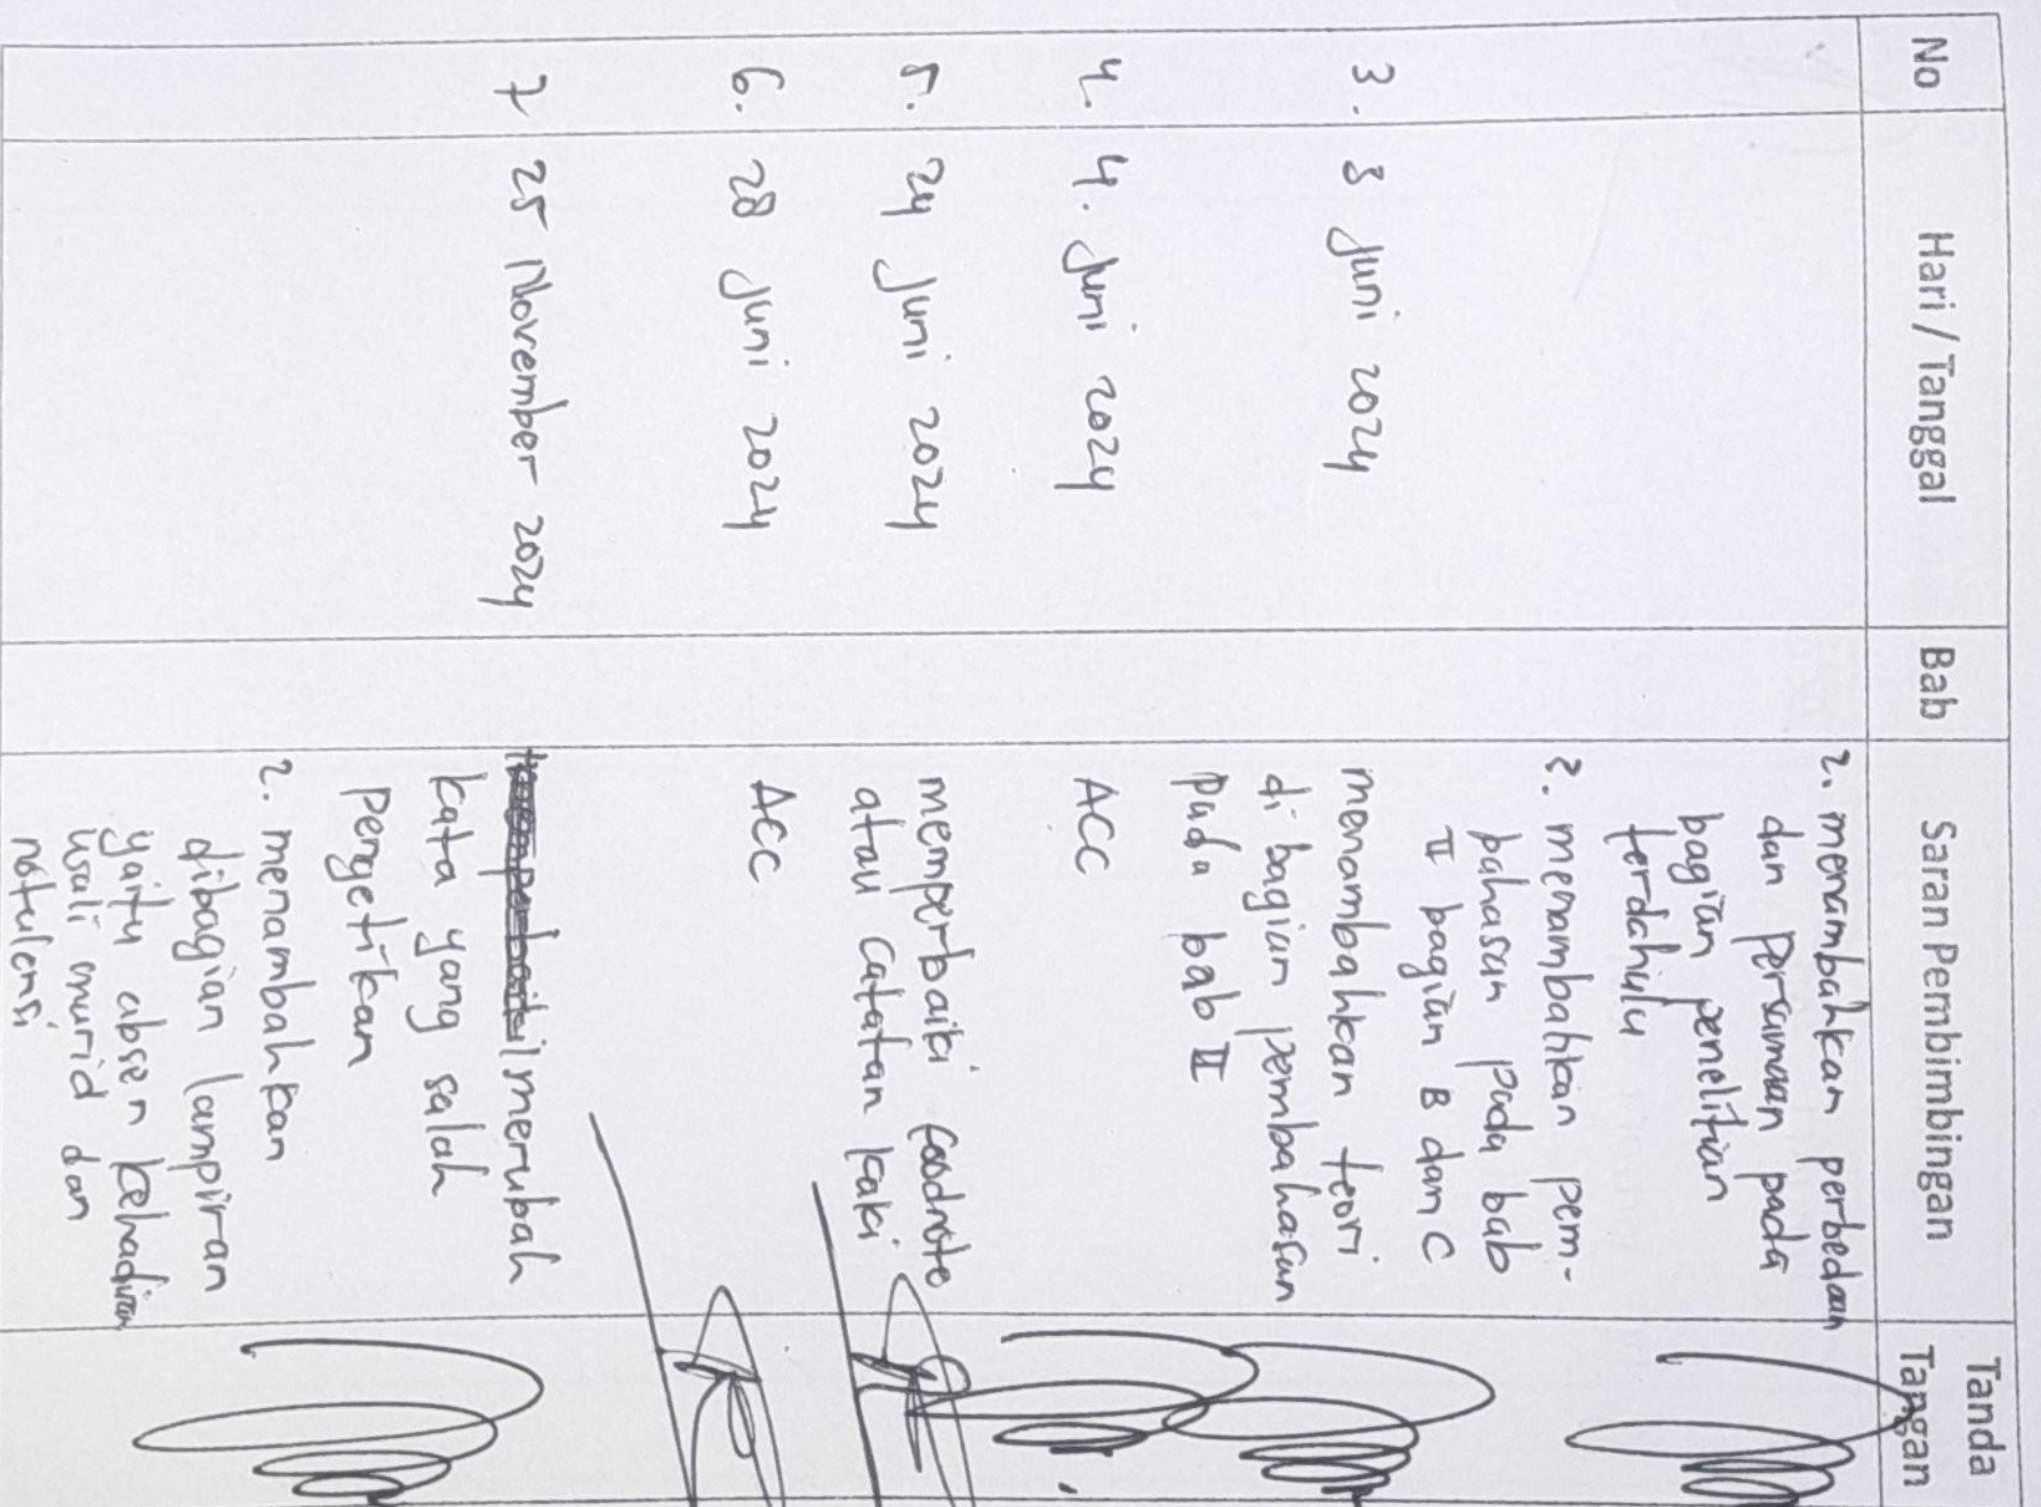 No Hari / Tanggal Bab Saran Pembimbingan Tanda Tangan
2. menambahkan perbedaan
dan persamaan pada
bagian penelitian
terdahulu
3. menambahkan pem-
bahasan pada bab
II bagian B dan C
3. 3 Juni 2024 menambahkan teori
di bagian pembahasan
pada bab II
4. 4. Juni 2024 ACC
5. 24 Juni 2024 memperbaiki foodnote
atau catatan kaki
6. 28 Juni 2024 ACC
7 25 November 2024 1 merubah
kata yang salah
pengetikan
2. menambahkan
dibagian lampiran
yaitu absen kehadiran
wali murid dan
notulensi